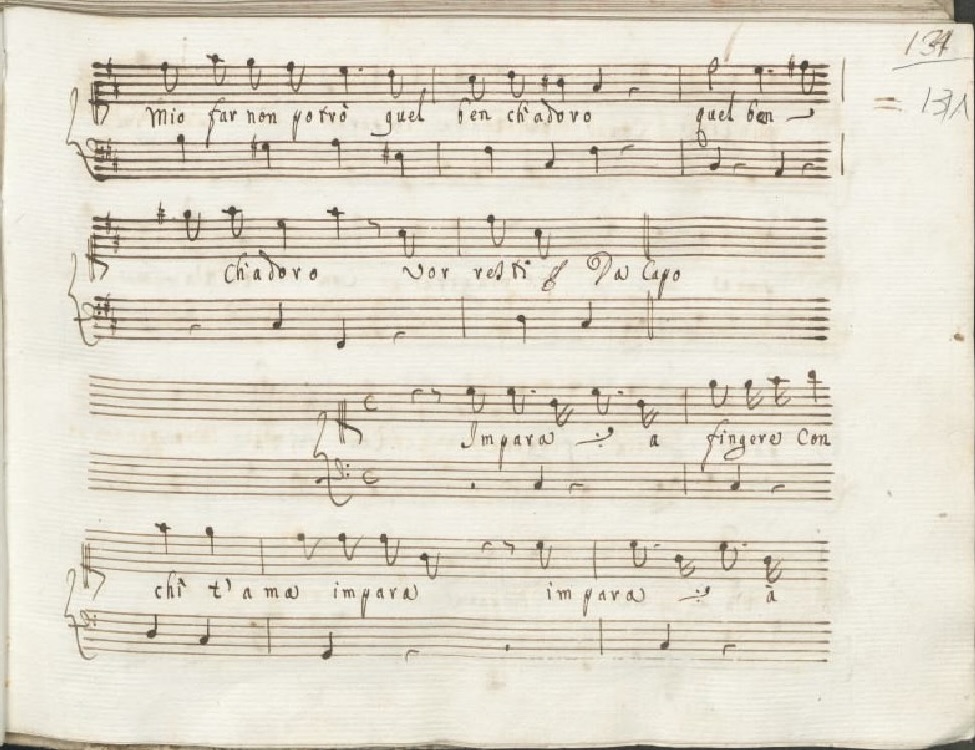 134
131
Mio far non potrò quel ben ch'adoro quel ben
Ch'adoro Vorresti Da Capo
Impara a fingere Con
chi t'ama impara impara à